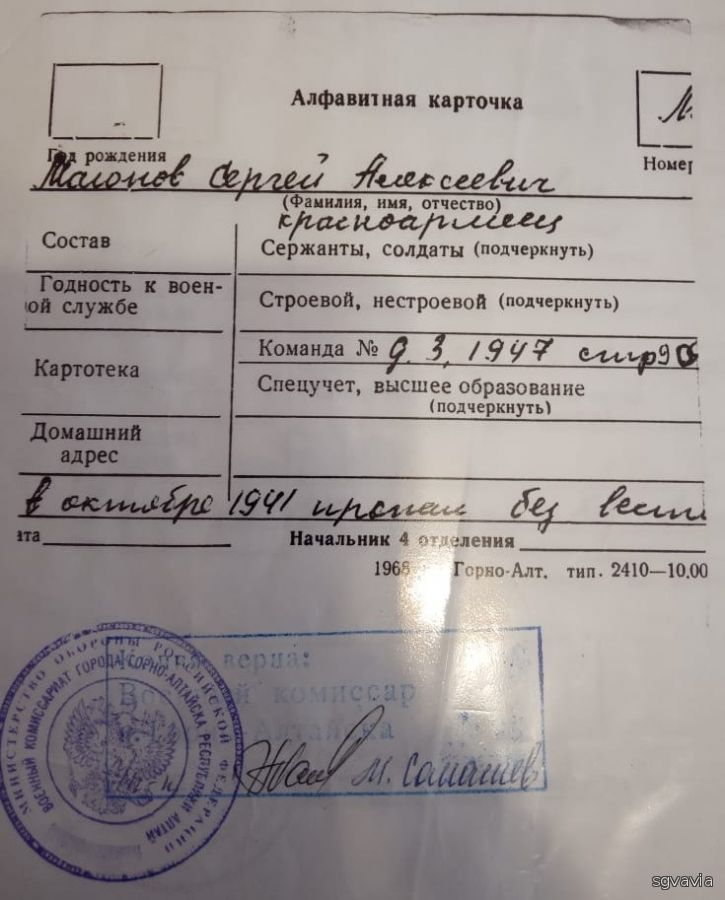 Алфавитная карточка
Год рождения
Номер
Сергей Алексеевич
(Фамилия, имя, отчество)
красноармеец
Состав
Сержанты, солдаты (подчеркнуть)
Годность к воен-
ой службе
Строевой, нестроевой (подчеркнуть)
Команда № д. 3, 1947 стр 96
Картотека
Спецучет, высшее образование
(подчеркнуть)
Домашний
адрес
в октябре 1941 пропал без вести
ата
Начальник 4 отделения
1968 Горно-Алт. тип. 2410—10.00
МИНИСТЕРСТВО ОБОРОНЫ РОССИЙСКОЙ ФЕДЕРАЦИИ
ВОЕННЫЙ КОМИССАРИАТ ГОРОДА ГОРНО-АЛТАЙСКА РЕСПУБЛИКИ АЛТАЙ
Копия верна:
комиссар
Алтайска
sgvavia